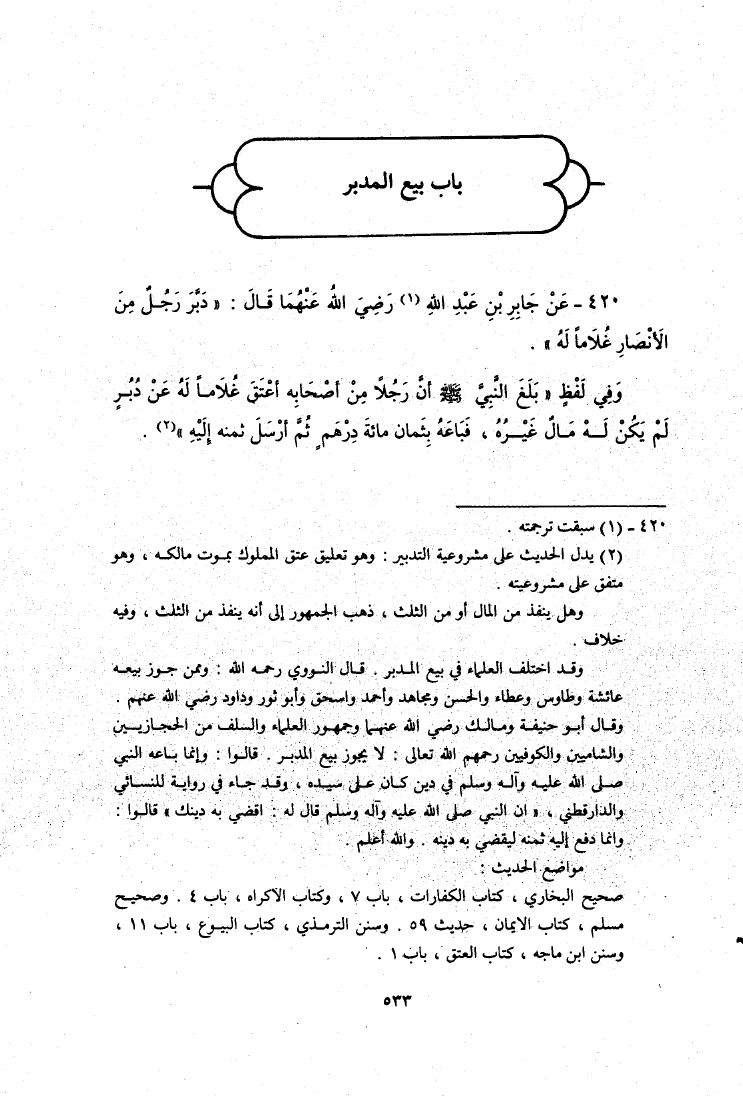 باب بيع المدبر
٤٢٠ - عَنْ جَابِرِ بْنِ عَبْدِ اللهِ (١) رَضِيَ اللهُ عَنْهُمَا قَالَ : « دَبَّرَ رَجُلٌ مِنَ
الْأَنْصَارِ غُلَاماً لَهُ » .
وَفِي لَفْظٍ « بَلَغَ النَّبِيَّ ﷺ أَنَّ رَجُلًا مِنْ أَصْحَابِه أَعْتَقَ غُلَاماً لَهُ عَنْ دُبُرٍ
لَمْ يَكُنْ لَهُ مَالٌ غَيْرُهُ ، فَبَاعَهُ بِثَمان مائةَ دِرْهَمٍ ثُمَّ أَرْسَلَ ثمنه إِلَيْهِ »(٢) .
٤٢٠ - (١) سبقت ترجمته .
(٢) يدل الحديث على مشروعية التدبير : وهو تعليق عتق المملوك بموت مالكه ، وهو
متفق على مشروعيته .
وهل ينفذ من المال أو من الثلث ، ذهب الجمهور إلى أنه ينفذ من الثلث ، وفيه
خلاف .
وقد اختلف العلماء في بيع المدبر . قال النووي رحمه الله : وممن جوز بيعه
عائشة وطاوس وعطاء والحسن ومجاهد وأحمد واسحق وأبو ثور وداود رضي الله عنهم .
وقال أبو حنيفة ومالك رضي الله عنهما وجمهور العلماء والسلف من الحجازيين
والشاميين والكوفيين رحمهم الله تعالى : لا يجوز بيع المدبر . قالوا : وإنما باعه النبي
صلى الله عليه وآله وسلم في دين كان على سيده ، وقد جاء في رواية للنسائي
والدارقطني ، « ان النبي صلى الله عليه وآله وسلم قال له : اقضي به دينك » قالوا :
وانما دفع إليه ثمنه ليقضي به دينه . والله أعلم .
مواضع الحديث :
صحيح البخاري ، كتاب الكفارات ، باب ٧ ، وكتاب الاكراه ، باب ٤ . وصحيح
مسلم ، كتاب الايمان ، حديث ٥٩ . وسنن الترمذي ، كتاب البيوع ، باب ١١ ،
وسنن ابن ماجه ، كتاب العتق ، باب ١ .
٥٣٣